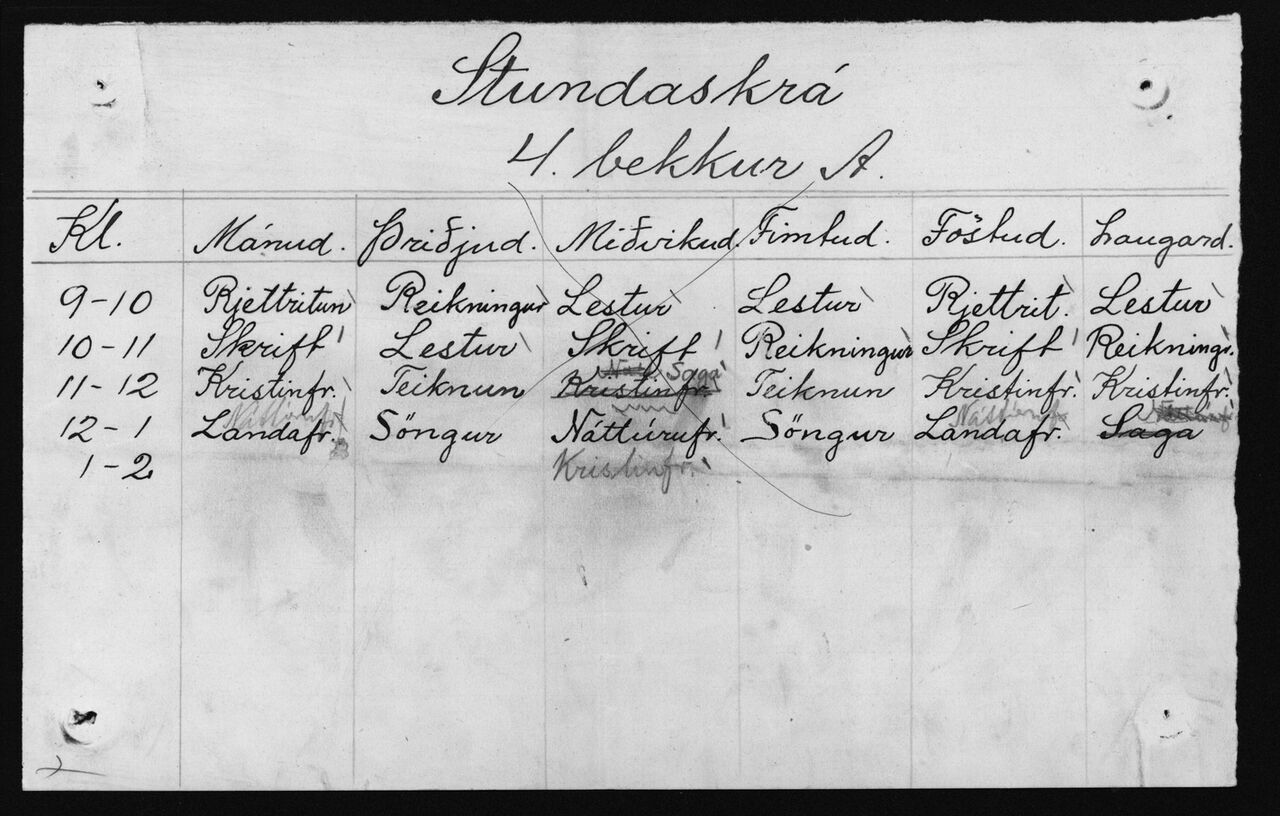 Stundaskrá
4. bekkur A.
Kl. Mánud. Þriðjud. Miðvikud. Fimtud. Föstud. Laugard.
9-10 Rjettritun Reikningur Lestur Lestur Rjettrit. Lestur
10-11 Skrift Lestur Skrift Reikningur Skrift Reikningr.
Saga
11-12 Kristinfr. Teiknun Kristinfr. Teiknun Kristinfr. Kristinfr.
Náttúrufr. Náttúrufr.
12-1 Landafr. Söngur Náttúrufr. Söngur Landafr. Saga
1-2 Kristinfr.